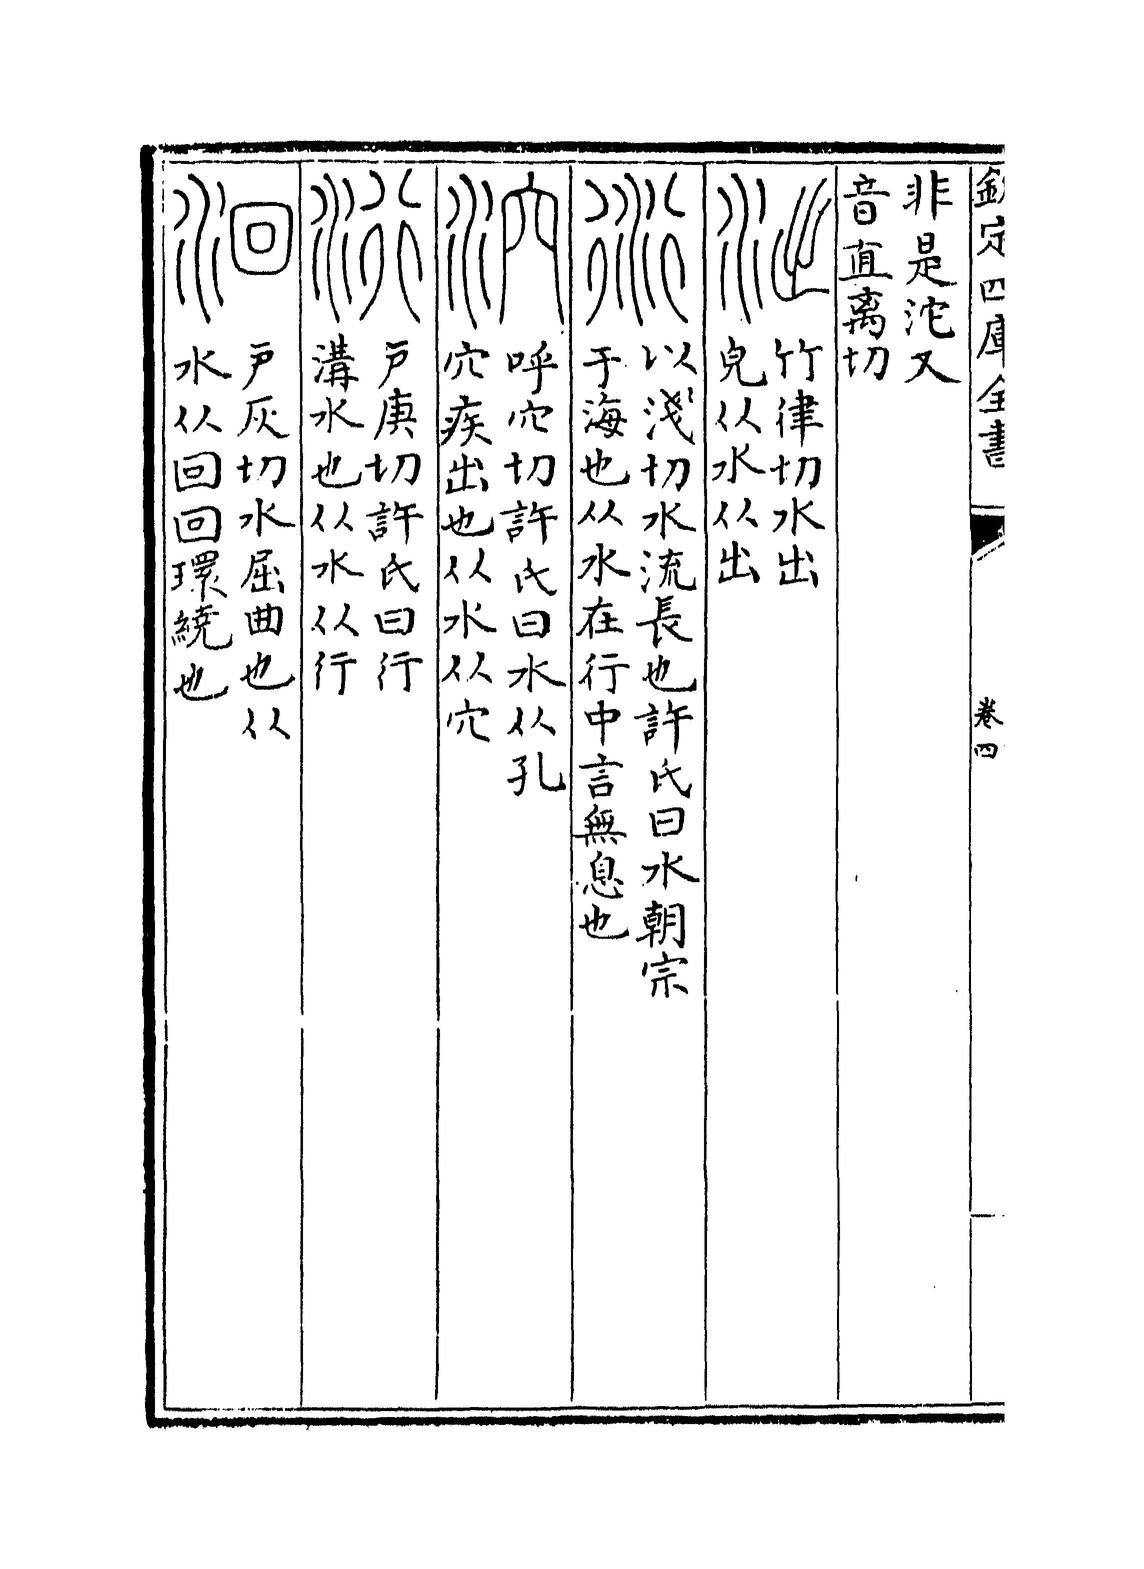 欽定四庫全書
卷四
非是沱又
音直离切
泏
竹律切水出
皃从水从出
衍
以淺切水流長也許氏曰水朝宗
于海也从水在行中言無息也
泬
呼穴切許氏曰水从孔
穴疾出也从水从穴
洐
戸庚切許氏曰行
溝水也从水从行
洄
戸灰切水屈曲也从
水从回回環繞也